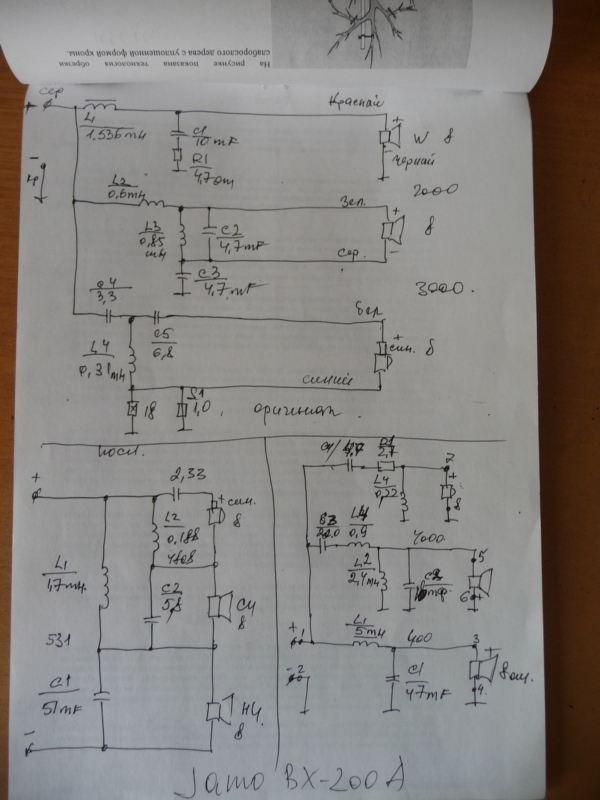 На рисунке показана технология обрезки
слаборослого дерева с уплощенной формой кроны.
+ сер
L1
1,536mH
C1
10mF
R1
4,7om
Красный
+
W 8
-
черный
2000
-
L2
0,6mH
L3
0,85
mH
C2
4,7mF
C3
4,7mF
Зел.
+
8
-
сер.
3000.
3,3
C5
6,8
L4
0,31mH
бел
+
син. 8
синий
18
1,0
оригинал.
посл.
+
2,33
+ син.
8
L2
0,188
L1
1,7mH.
C2
СЧ
8
531
C1
51mF
НЧ
8
-
4,7
R1
2,7
L4
0,22
+
8
0,9
4000
5
L2
2,4mH
6 +
+ 1
- 2
L1
5mH
400
C1
47mF
3
+
8 ом.
4.
Jamo BX-200A